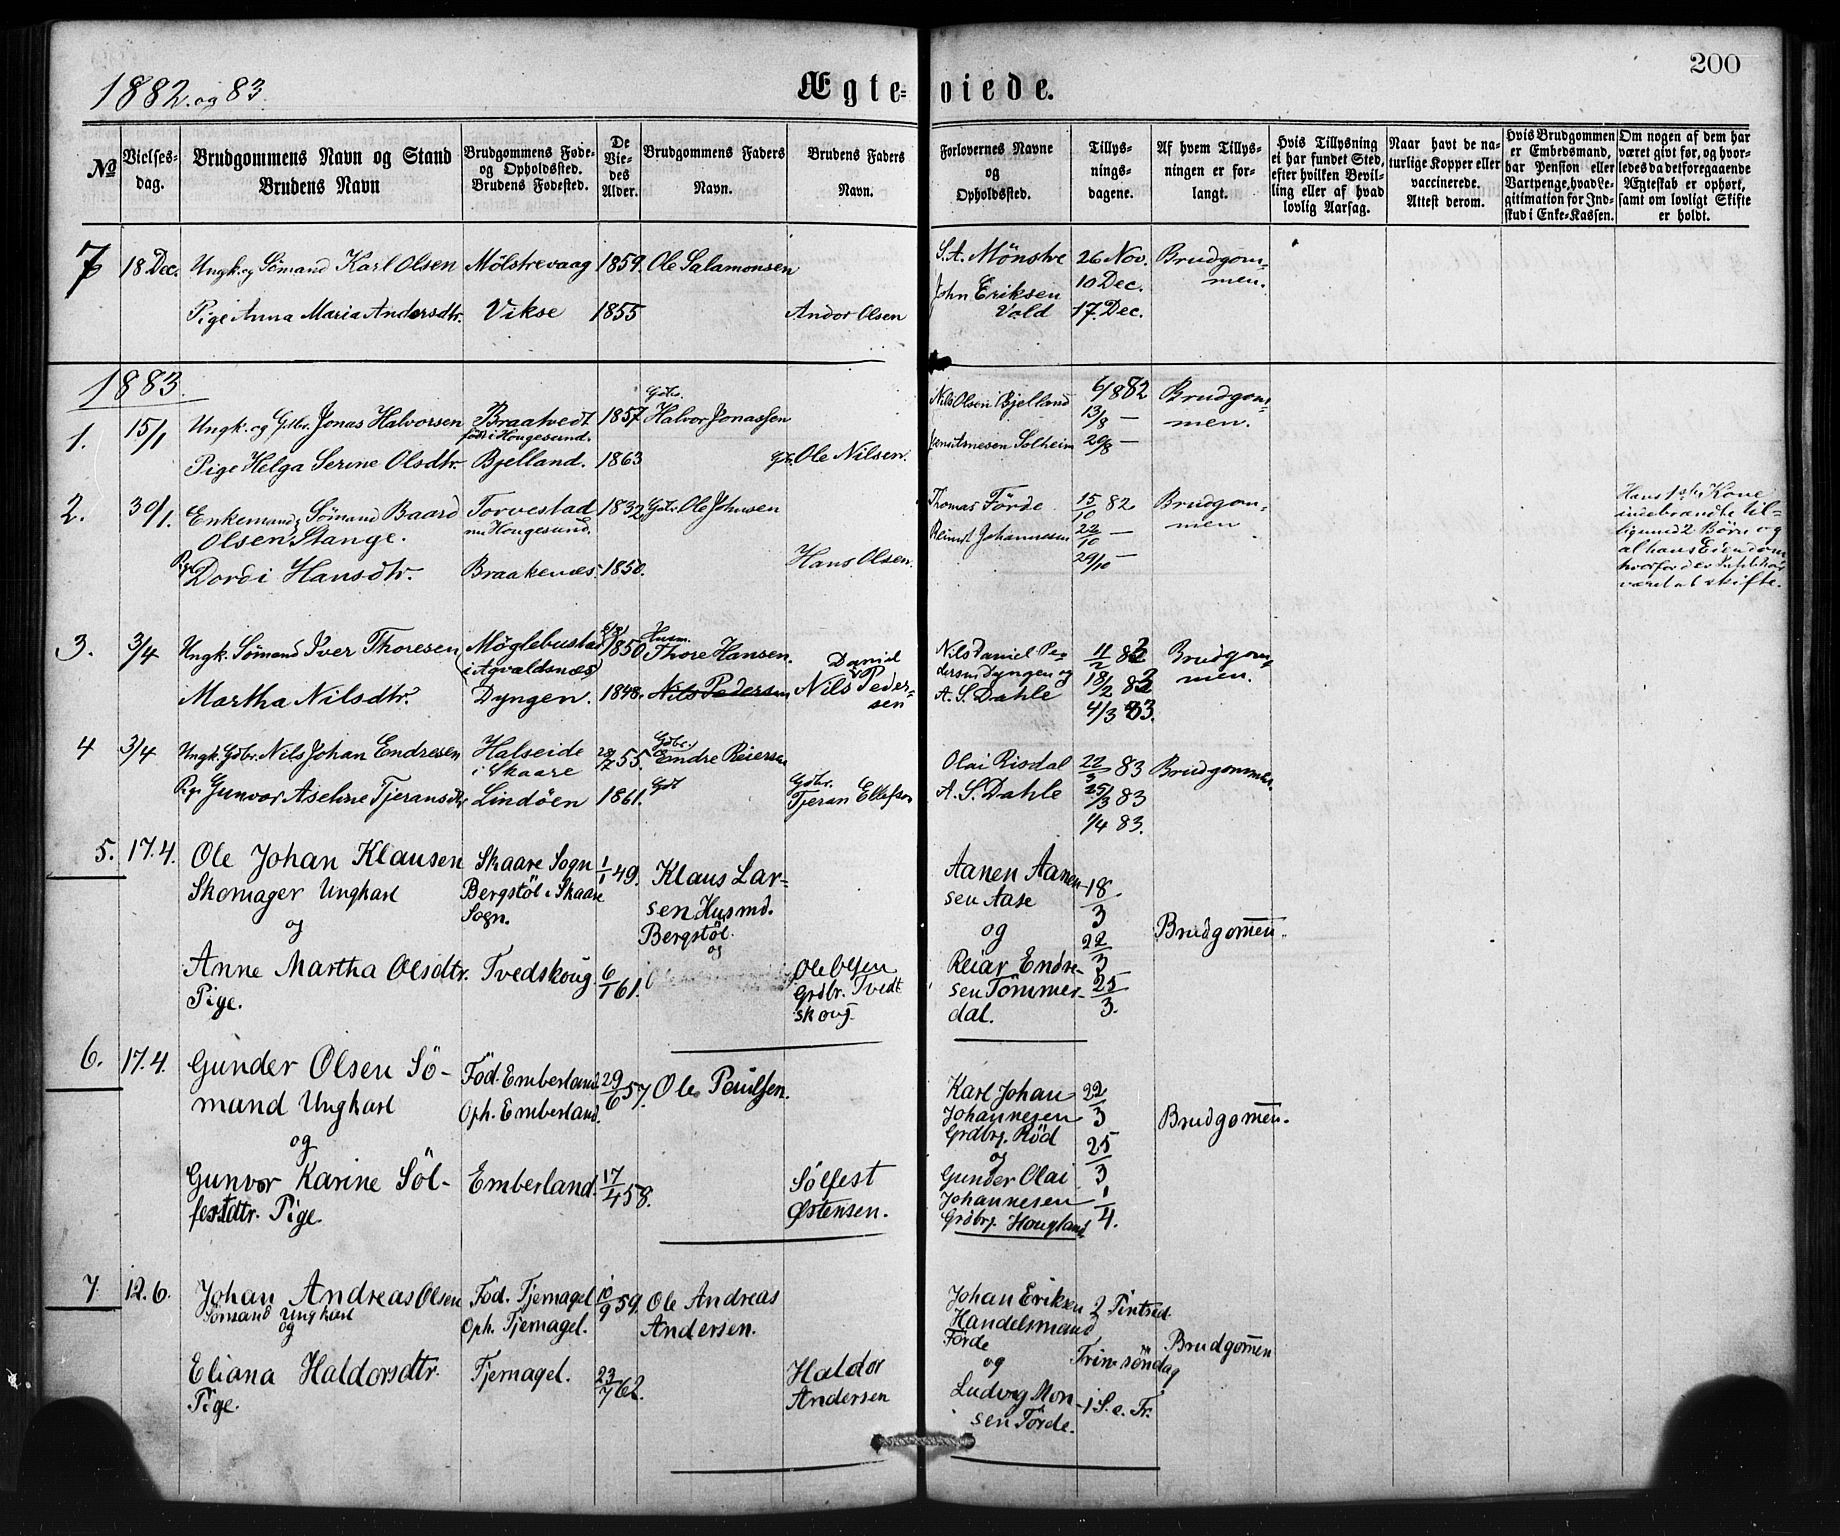 1882 og 83.
Ægte-viede.
200
No
Vielses-dag.
Brudgommens Navn og Stand
Brudens Navn
Brudgommens Føde-
og Opholdssted.
Brudens Fødested.
De
Vie-
des
Alder.
Brudgommens Faders
Navn.
Brudens Faders
Navn.
Forlovernes Navne
og
Opholdssted.
Tillys-
nings-
dagene.
Af hvem Tillys-
ningen er for-
langt.
Hvis Tillysning
ei har fundet Sted,
efter hvilken Bevil-
ling eller af hvad
lovlig Aarsag.
Naar havt de na-
turlige Kopper eller
vaccinerede.
Attest derom.
Hvis Brudgommen
er Embedsmand,
har Pension eller
Vartpenge, hvad Le-
gitimation for Ind-
skud i Enke-Kassen.
Om nogen af dem har
været givt før, og hvor-
ledes da det foregaaende
Ægteskab er ophørt,
samt om lovligt Skifte
er holdt.
7 18 Dec. Ungk. og Sömand Karl Olsen Mölstrevaag 1859. Ole Salamonsen S. A. Mönstre 26 Nov. Brudgom-
John Eriksen 10 Dec. men.
Pige Anna Maria Andersdtr. Vikse 1855 Andor Olsen Vold 17. Dec.
1883.
1. 15/1 Ungk. og Gdbr. Jonas Halvorsen Braatvedt 1857 Gdbr. Halvor Jonassen Nils Olsen Bjelland 6/8 82 Brudgom-
född i Hougesund. 13/8 — men.
Pige Helga Serine Olsdtr. Bjelland. 1863 Ole Nilsen. Arnesen Solheim 20/8 —
2. 30/1. Enkemand, Sömand Baard Torvestad 1832. Ole Johnsen Thomas Förde 15/10 82 Brudgom-
Olsen Stange. nu Hougesund. Johannesen 22/10 — men
Pige Dordi Hansdtr. Braakenæs. 1850. Hans Olsen. 29/10 —
Hans 1ste Kone
indebrændte til-
ligemed 2 Börn og
al hans Eiendom
hvorfor der har
været skifte.
3. 3/4 Ungk. Sömand Iver Thoresen Möglebustad 1850 Husm. Thore Hansen. Nils Daniel Pe- 11/2 83 Brudgom-
(i Agvaldsnæs) dersen Dyngen og 18/2 83 men.
Martha Nilsdtr. Dyngen. 1848. Nils Pedersen Nils Daniel Peder-
sen A. S. Dahle 4/3 83.
4 3/4 Ungk. Gdbr. Nils Johan Endresen Halseide 55. Gdbr. Endre Reiersen Olai Risdal 22/3 83 Brudgommen.
i Skaare
Pige Gunvor Aseline Tjeransdtr Lindöen 1861. Gdbr. Tjeran Ellefsen A. S. Dahle 25/3 83
1/4 83.
5. 17.4. Ole Johan Klausen Skaare Sogn 1/1 49. Klaus Lar- Aanen Aanen-
Skomager Ungkarl Bergstöl i Skaare sen Husmd. sen Aase 18/3
og Sogn. Bergstöl. og 22/3 Brudgom̅en.
og
Anne Martha Olsdtr. Tvedskoug. 6/1 61. Ole Olsen Reiar Endre-
Pige. Grdbr. Tvedt sen Tömmer- 25/3.
skoug. dal.
6. 17.4. Gunder Olsen Sö- Föd. Emberland 29/6 57. Ole Paulsen. Karl Johan 22/3
mand Ungkarl Oph. Emberland. Johannesen Brudgom̅en.
og Grdbr. Röd 25/3
og
Gunvor Karine Söl- Emberland. 17/4 58. Sölfest Gunder Olai
festdtr. Pige. Østensen. Johannesen 1/4.
Grdbr. Hougland
7. 12.6. Johan Andreas Olsen Föd. Tjernagel 10/9 59. Ole Andreas Johan Eriksen 2 Pintsed.
Sömand Ungkarl Oph. Tjernagel. Andersen. Handelsmand
og Förde Brudgom̅en
og Trin. söndag
Eliana Haldorsdtr. Tjernagel. 23/7 62. Haldor Ludvig Mon-
Pige. Andersen sen Förde. 1 S. e. Tr.